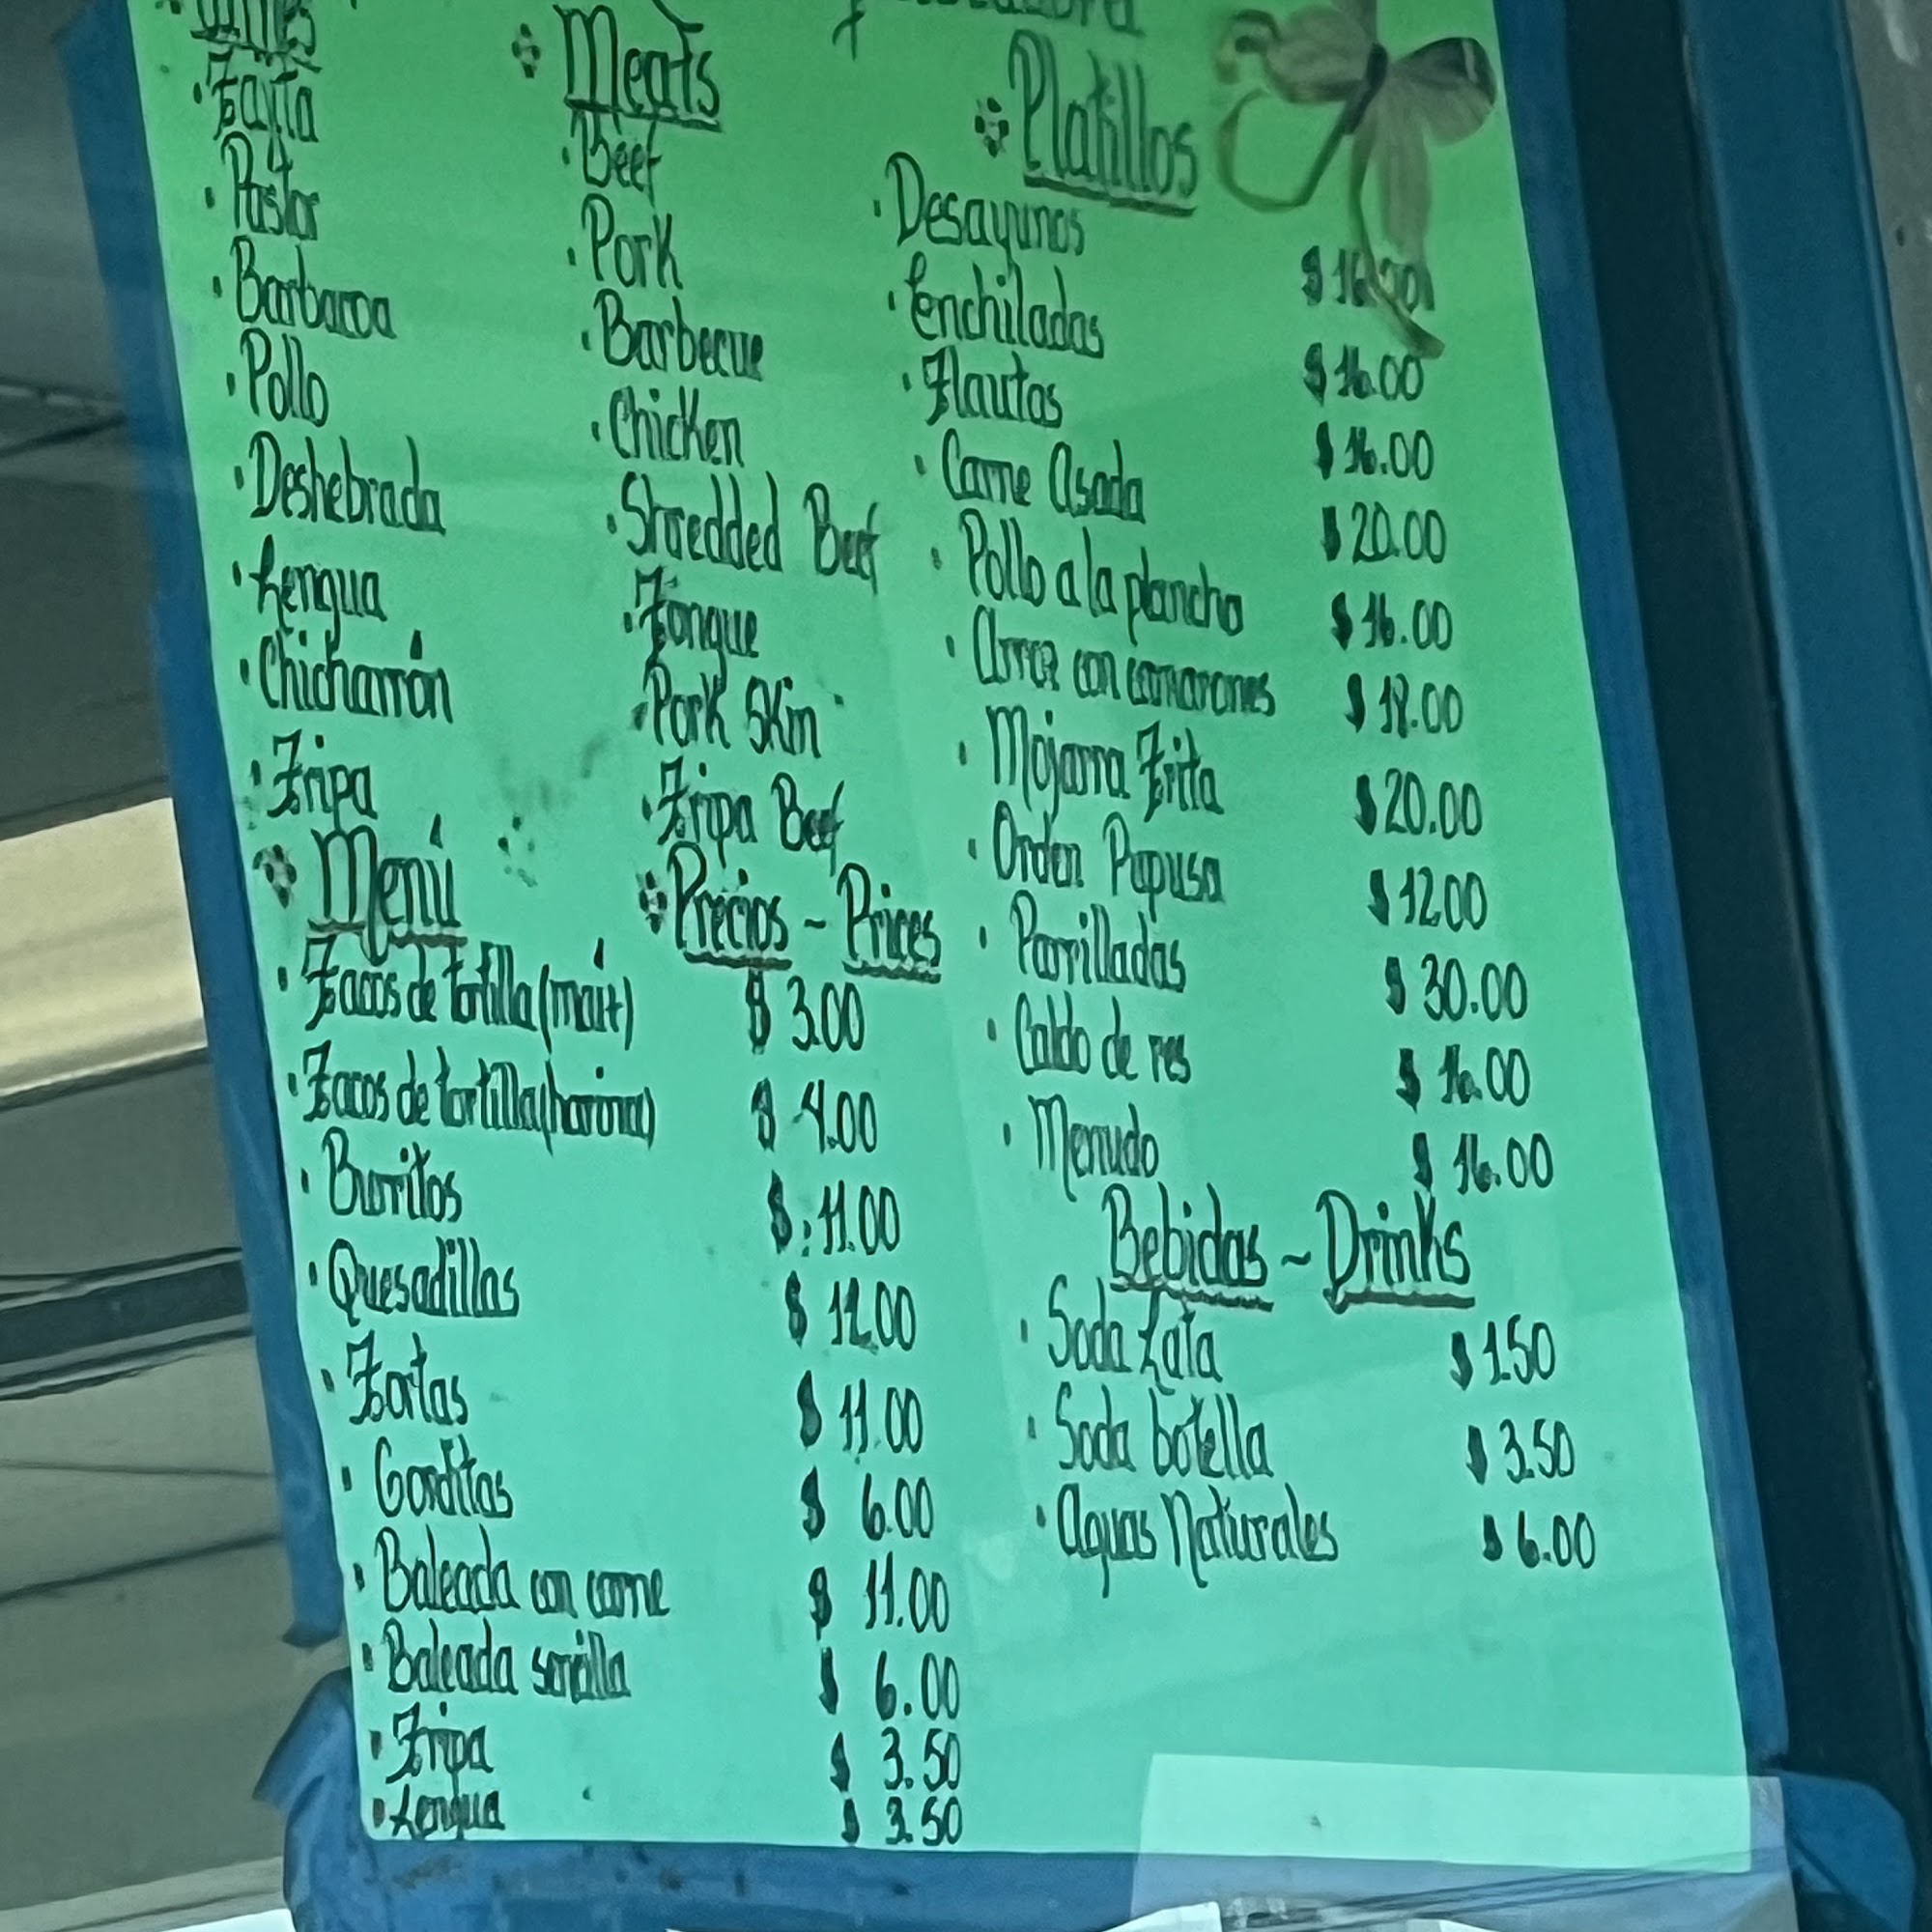 Carnes
Fajita
Pastor
Barbacoa
Pollo
Deshebrada
Lengua
Chicharrón
Tripa
Meats
Beef
Pork
Barbecue
Chicken
Shredded Beef
Tongue
Pork Skin
Tripa Beef
Menú
Precios ~ Prices
Tacos de tortilla (maíz) $ 3.00
Tacos de tortilla (harina) $ 4.00
Burritos $ 11.00
Quesadillas
Tortas $ 11.00
Gorditas $ 6.00
Baleada con carne $ 11.00
Baleada sencilla $ 6.00
Tripa $ 3.50
Lengua $ 3.50
Platillos
Desayunos
Enchiladas $ 16.00
Flautas $ 16.00
Carne Asada $ 20.00
Pollo a la plancha $ 16.00
Arroz con camarones $ 18.00
Mojarra Frita $ 20.00
Orden Pupusa $ 12.00
Parrilladas $ 30.00
Caldo de res $ 16.00
Menudo $ 16.00
Bebidas ~ Drinks
Soda Lata $ 1.50
Soda botella $ 3.50
Aguas Naturales $ 6.00